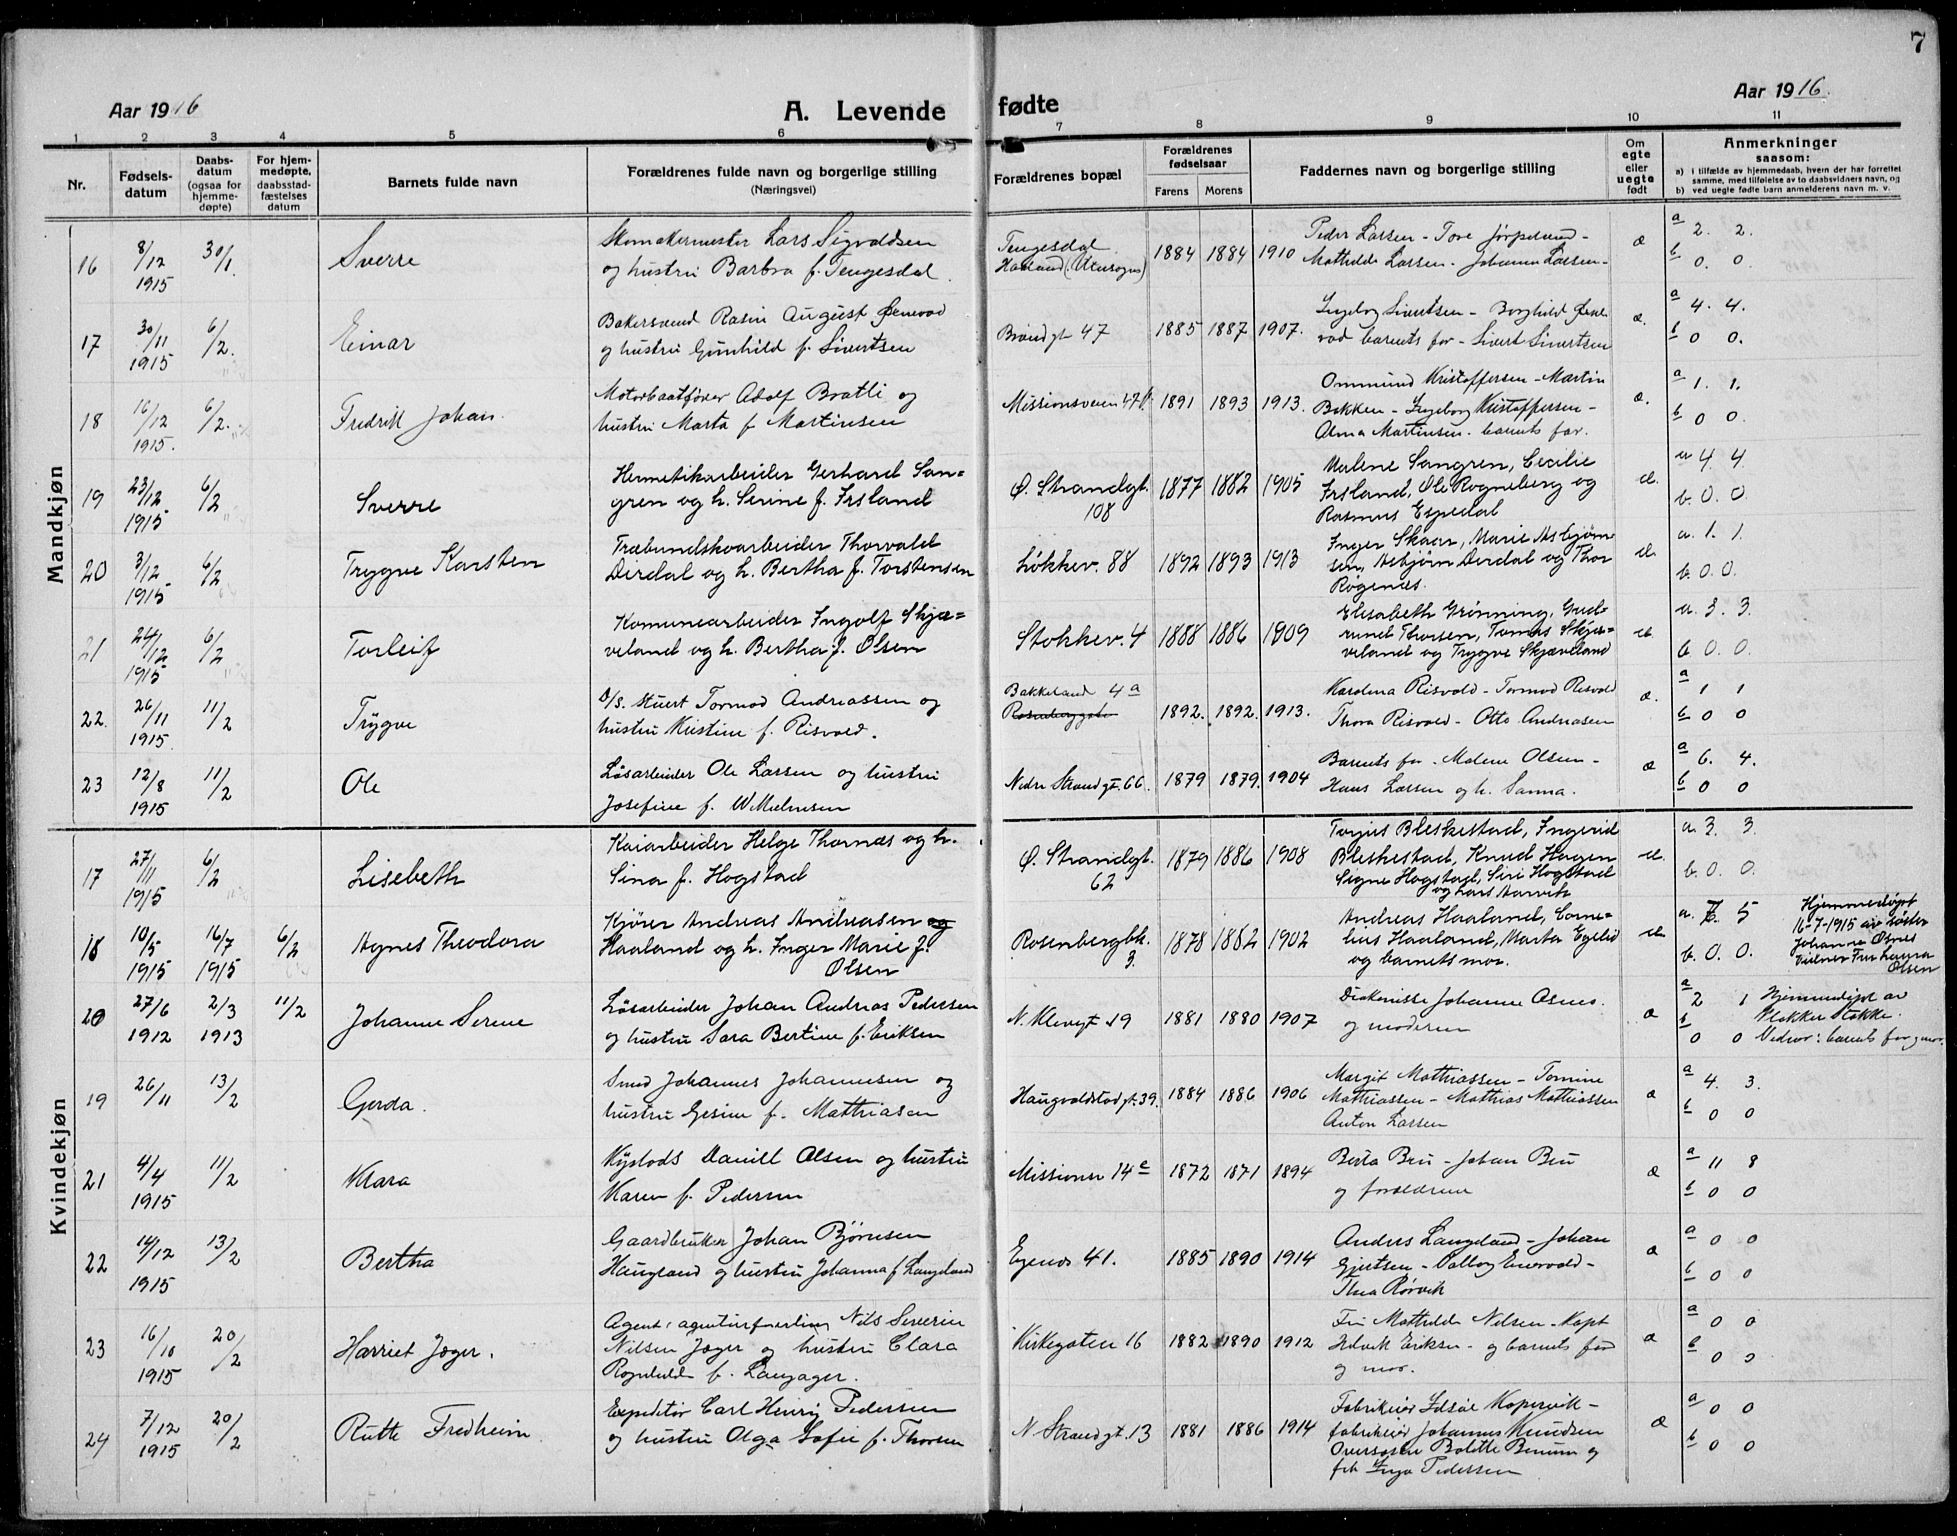 7
Aar 1916
A. Levende fødte
Aar 1916.
1 2 3 4 5 6 7 8 9 10 11
Nr.
Fødsels-
datum
Daabs-
datum
(ogsaa for
hjemme-
døpte)
For hjem-
medøpte,
daabsstad-
fæstelses
datum
Barnets fulde navn
Forældrenes fulde navn og borgerlige stilling
(Næringsvei)
Forældrenes bopæl
Forældrenes
fødselsaar
Farens Morens
Faddernes navn og borgerlige stilling
Om
egte
eller
uegte
født
Anmerkninger
saasom:
a) i tilfælde av hjemmedaab, hvem der har forrettet
samme, med tilføielse av to daabsvidners navn, og
b) ved uegte fødte barn anmelderens navn m. v.
Mandkjøn
16 8/12 1915 30/1. Sverre
Skomakermester Lars Sigvaldsen
og hustru Barbra f. Tengesdal.
Tengesdal
Haaland (Utensogns)
1884 1884 1910
Peder Larsen - Tore Jørpeland -
Mathilde Larsen - Johanna Larsen -
æ
a 2. 2.
b 0. 0.
17 30/11 1915 6/2. Einar
Bakersvend Rasin August
og hustru Gunhild f. Sivertsen
47
1885 1887 1907.
Ingeborg Sivertsen - Borghild
barnets far - Sivert Sivertsen
æ.
a 4. 4.
b 0 0.
18 16/12 1915. 6/2. Fredrik Johan.
Motorbaatfører Adolf Bratli og
hustru Marta f Martinsen
Missionsveien
1891 1893 1913.
Ommund Kristoffersen - Martin
Bakken - Ingeborg Kristoffersen -
Alma Martinsen. barnets far.
æ.
a 1. 1.
b 0 0.
19 23/12 1915. 6/2 Sverre
Hermetikarbeider Gerhard San=
gren og h. Serine f. Irsland
Ø. Strandgt.
108
1877 1882 1905
Malene Sangren, Cecilie
Irsland, Ole Rogneberg og
Rasmus Espedal
æ.
a 4. 4
b. 0. 0.
20 3/12 1915. 6/2 Trygve Karsten
Træbundskoarbeider Thorvald
Dirdal og h. Bertha f. Torstensen
Løkkev. 88
1892 1893 1913
Inger Skaar, Marie Asbjørn
sen, Asbjørn Dirdal og Thor
Røgenæs.
æ.
a. 1. 1.
b. 0. 0.
21 24/12 1915 6/2 Torleif
Komunearbeider Ingolf Skjæ=
veland og h. Bertha f. Olsen
Stokkev. 4
1888 1886 1909
Elisabeth Grønning, Gud-
rund Thorsen, Tomas Skjæ=
veland og Trygve Skjæveland
æ.
a. 3. 3.
b 0. 0.
22. 26/11 1915. 11/2 Trygve
D/S. stuert Tormod Andreassen og
hustru Kristine f. Risvold.
Bakkeland 4a
1892. 1892. 1913.
Karolina Risvold - Tormod Risvold
Thora Risvold - Otto Andreasen
æ.
a 1 1
b 0 0
23 12/8 1915 11/2 Ole
Løsarbeider Ole Larsen og hustru
Josefine f.
Nedre Strandgt. 66.
1879 1879. 1904
Barnets far. Malene Olsen -
Hans Larsen og h. Sanna.
æ
a 6. 4.
b 0 0
Kvindekjøn
17 27/11 1915 6/2 Lisebeth
Kaiarbeider Helge Thornæs og h.
Sina f. Hogstad
Ø. Strandgt.
62
1879 1886 1908
Torjus Bleskestad, Ingerid
Bleskestad, Knud Hagen
Signe Hogstad, Siri Hogstad
og Lars Aarvik
æ.
a. 3. 3.
b. 0. 0.
18 10/5 1915 16/7 1915 6/2 Agnes Theodora
Kjører Andreas Andreasen og
Haaland og h. Inger Marie f.
Olsen
Rosenbergbk.
3.
1878 1882 1902
Andreas Haaland, Corne=
lius Haaland, Marta Egelid
og barnets mor.
æ.
a. 7. 5
b. 0. 0.
Hjemmedøpt
16-7-1915 av søster
Johanne Osnes
Vidner Fru Laura
Olsen
20 27/6 1912 2/3 1913 11/2 Johanne Serene
Løsarbeider Johan Andreas Pedersen
og hustru Sara Bertine f. Eriksen
N. Klevegt 19
1881 1880 1907
Diakonisse Johanne Osnes.
og moderen
æ
a 2 1
b 0 0
Hjemmedøpt av
Klokker Stokke.
Vidner: barnets far og mor.
19 26/11 13/2 Gerda.
Smed Johannes Johannesen og
hustru Gesine f. Matthiasen
Haugvaldstadgt. 39.
1884 1886 1906
Margit Mathiassen - Tomine
Mathiassen - Mathias Mathiassen
Anton Larsen
æ
a 4. 3.
b 0 0
21 4/4 1915 11/2 Klara
Kystlods Daniel Olsen og hustru
Karen f. Pedersen
Missionsv 14c
1872 1871 1894
Berta Bru - Johan Bru
og forældrene
æ
a 11 8
b 0 0
22 14/12 1915 13/2 Bertha
Gaardbruker Johan Bjørnsen
Haugland og hustru Johanna f Langeland
Egenes 41.
1885 1890 1914
Anders Langeland - Johan
Gjertsen - Valborg
Thea Rørvik
æ
a 0 0
b 0 0
23 16/10 1915 20/2 Harriet Jæger.
Agent, Nils Severin
Nilsen Jæger og hustru Clara
Ragnhilda f. Langager.
Kirkegaten 16
1882 1890 1912
Fru Mathilde Nilsen - Kapt
Eriksen - og barnets far
og mor.
æ
a 0 0
b 0 0
24 7/12 1915 20/2 Ruth Fredheim
Expeditør Carl Henrij Pedersen
og hustru Olga Sofie f. Thorsen
N. Strandgt. 13
1881 1886 1914
Fabrikeier Kopervik -
fabrikeier Johannes Knudsen
Bolette og
frk Inga Pedersen
æ
a 0 0
b 0 0